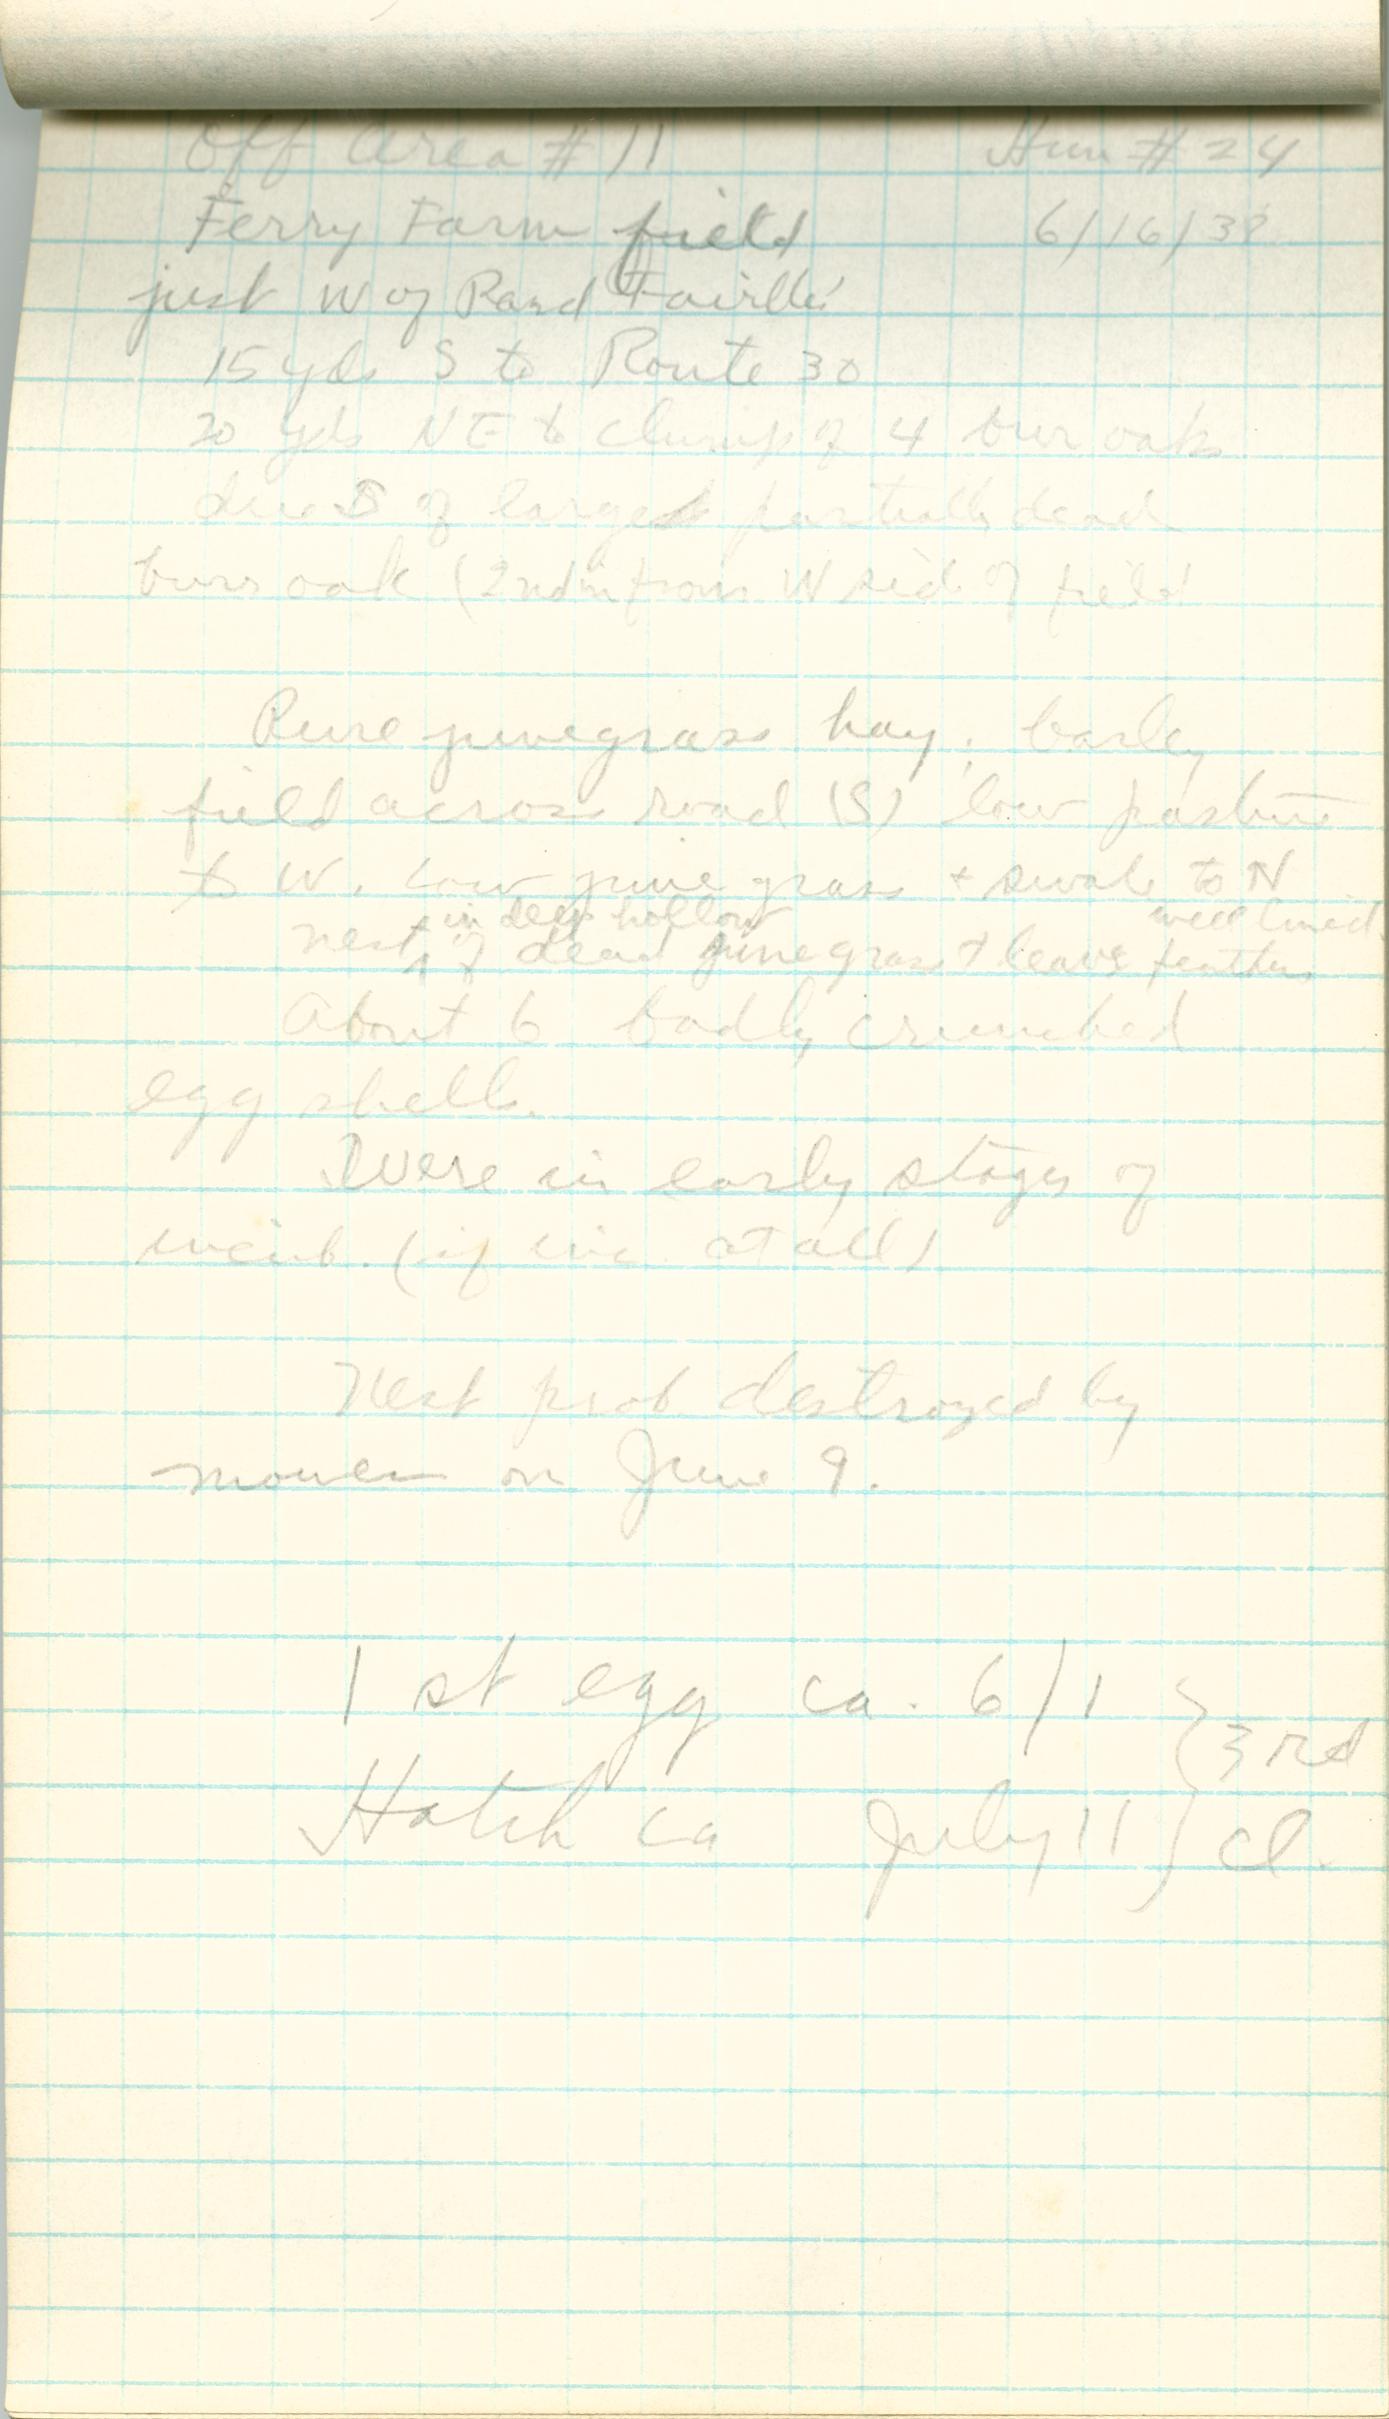 Off Area # 11 Hun # 24
Ferry Farm field 6/16/38
just W of Rand Fairlie
15 yds S to Route 30
20 yds NE to clump of 4 bur oaks
due S of large partially dead
burr oak (2nd in from W side of field
Pure junegrass hay, barley
field across road (S) low pasture
to W. Low june grass + swale to N
in deep hollow well lined
nest ^ of dead june grass + leaves feathers
About 6 badly crunched
egg shells.
Were in early stages of
incub. (if inc. at all)
Nest prob destroyed by
mower on June 9.
1 st egg ca. 6/1 } 3rd
Hatch ca July 11 } cl.